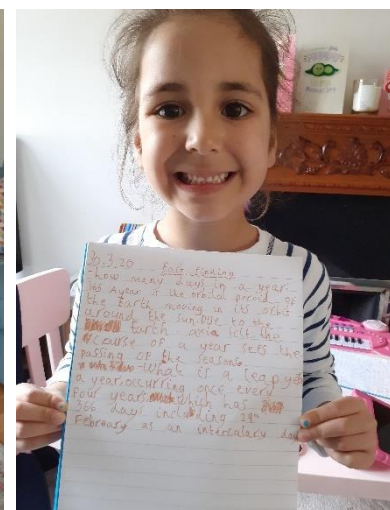 3.3.20 Fact Finding
-how many days in a year-
365 A year is the orbital period of
the Earth moving in its orbit
around the sun. Due to the
Earth axial tilt the
course of a year sees the
passing of the seasons
-What is a leap year
a year, occurring once every
four years which has
366 days including 29th
February as an intercalary day